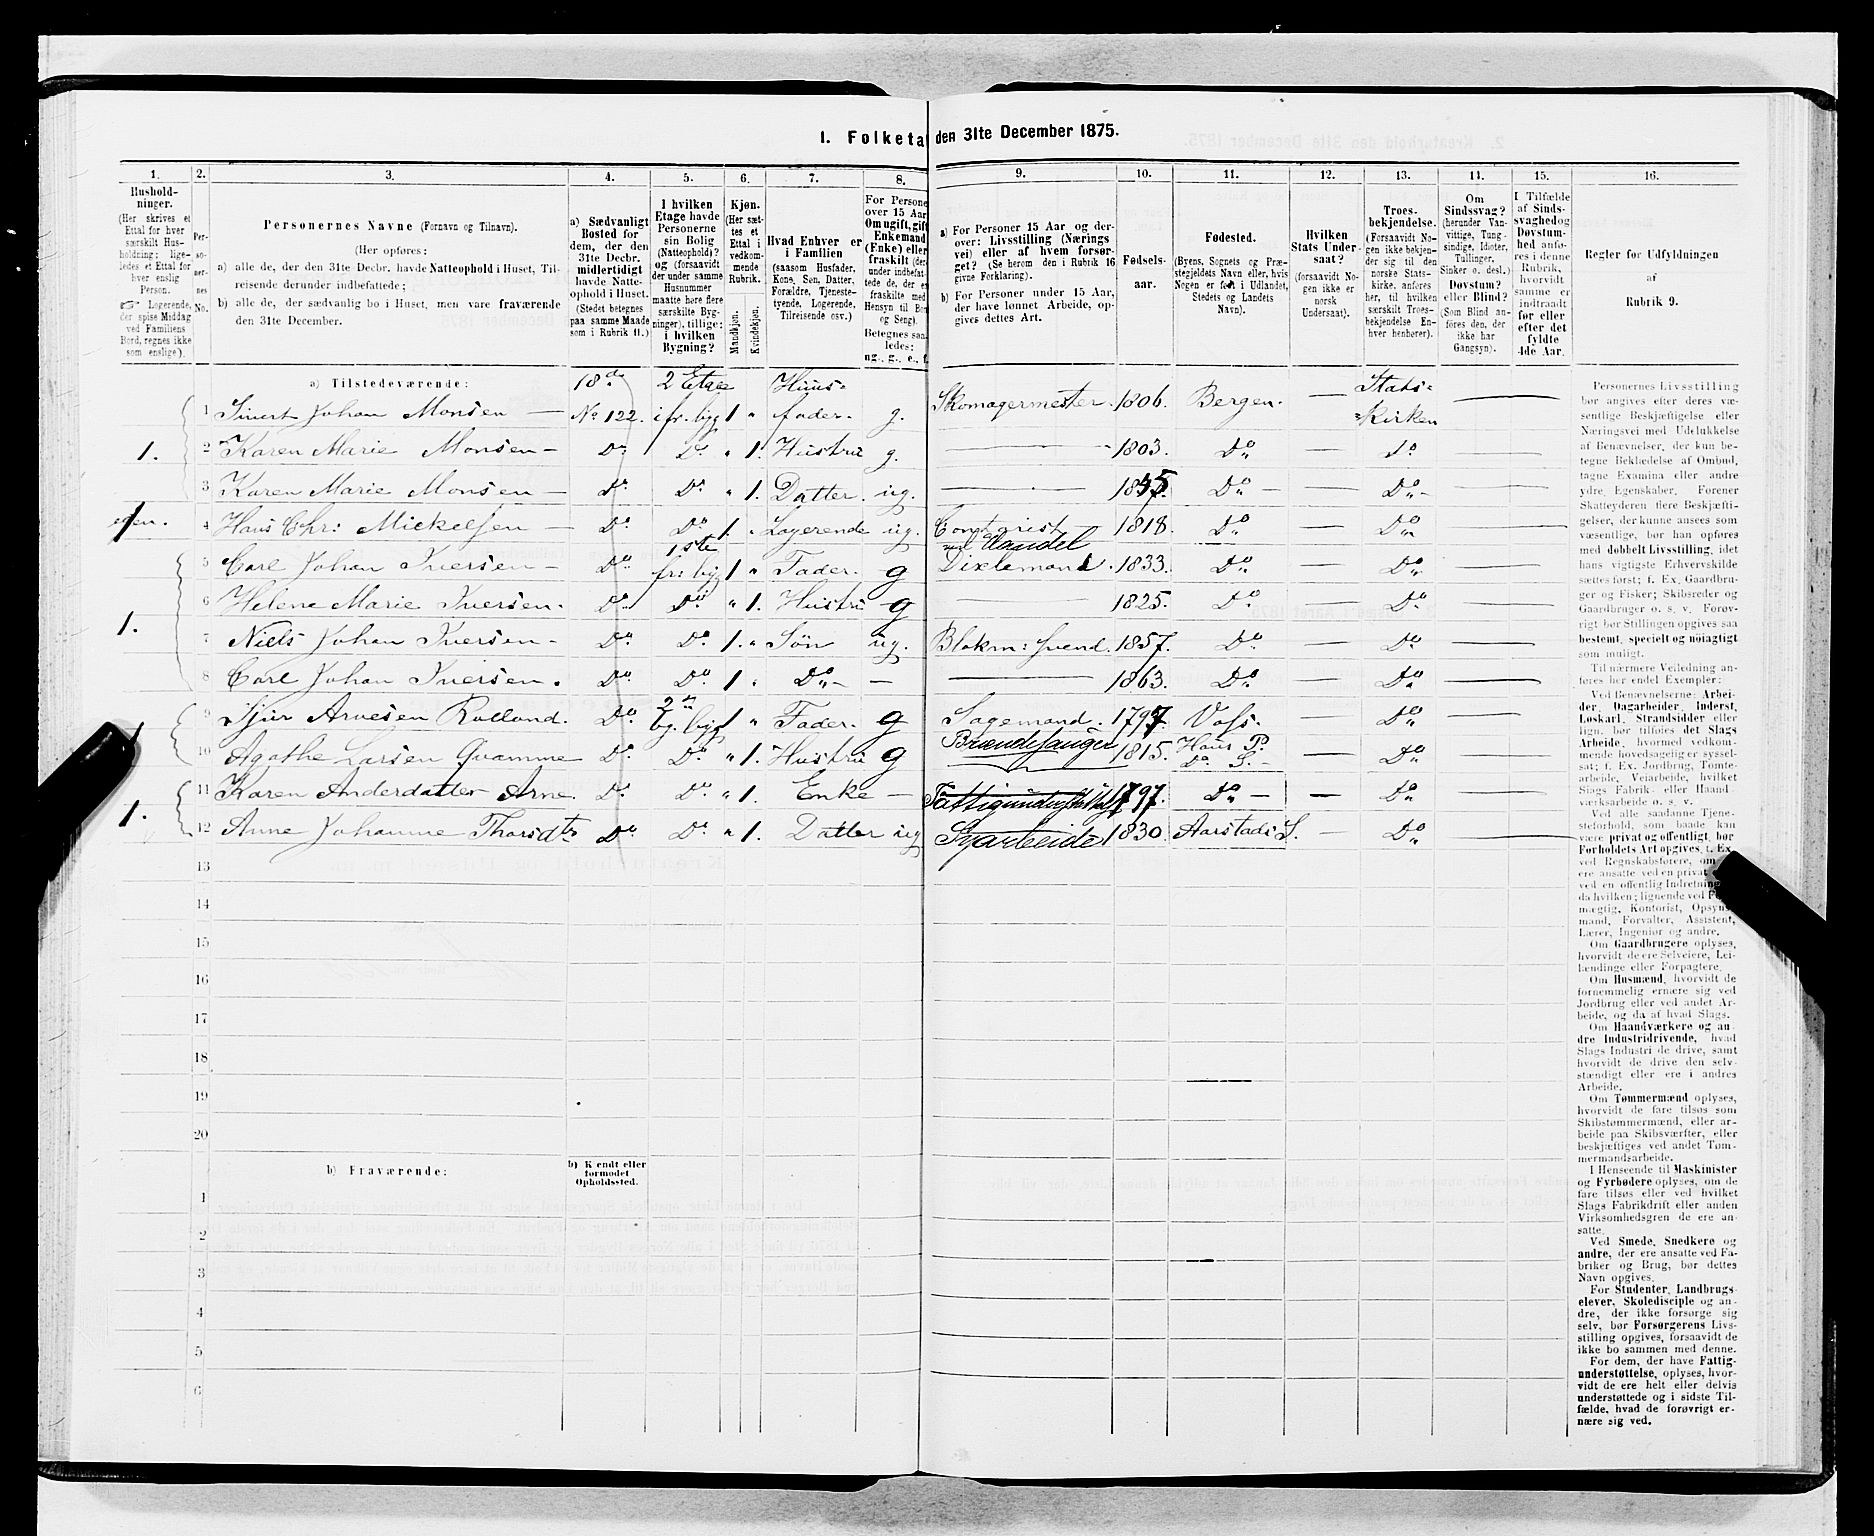 1. Folketal den 31te December 1875.
1. 2. 3. 4. 5. 6. 7. 8. 9. 10. 11. 12. 13. 14. 15. 16.
Hushold-
ninger.
(Her skrives et
Ettal for hver
særskilt Hus-
holdning; lige-
ledes et Ettal for
hver enslig
Person.
Logerende,
der spise Middag
ved Familiens
Bord, regnes ikke
som enslige).
Per-
so-
ner-
nes
No.
Personernes Navne (Fornavn og Tilnavn).
(Her opføres:
a) alle de, der den 31te Decbr. havde Natteophold i Huset, Til-
reisende derunder indbefattede;
b) alle de, der sædvanlig bo i Huset, men vare fraværende
den 31te December.
a) Sædvanligt
Bosted for
dem, der den
31te Decbr.
midlertidigt
havde Natte-
ophold i Huset.
(Stedet betegnes
paa samme Maade
som i Rubrik 11.)
I hvilken
Etage havde
Personerne
sin Bolig
(Natteophold)?
og (forsaavidt
der under samme
Husnummer
maatte høre flere
særskilte Byg-
ninger), tillige:
i hvilken
Bygning?
Kjøn.
(Her sæt-
tes et
Ettal i
vedkom-
mende
Rubrik.
Mandkjøn.
Kvindekjøn.
Hvad Enhver er
i Familien
(saasom Husfader,
Kone, Søn, Datter,
Forældre, Tjeneste-
tyende, Logerende,
Tilreisende osv.)
For Persone
over 15 Aar
Om ugift, gift
Enkemand
(Enke) eller
fraskilt (der
under indbefat-
tede de, der er
fraskilte med
Hensyn til Bor
og Seng).
Betegnes saa-
ledes:
ug., g., e., f.
a) For Personer 15 Aar og der-
over: Livsstilling (Nærings-
vei) eller af hvem forsør-
get? (Se herom den i Rubrik 16
givne Forklaring).
b) For Personer under 15 Aar,
der have lønnet Arbeide, op-
gives dettes Art.
Fødsels-
aar.
Fødested.
(Byens, Sognets og Præ-
stegjeldets Navn eller, hvis
Nogen er født i Udlandet,
Stedets og Landets
Navn).
Hvilken
Stats Under-
saat?
(forsaavidt No-
gen ikke er
norsk
Undersaat).
Troes-
bekjendelse.
(Forsaavidt No-
gen ikke bekjen-
der sig til den
norske Stats-
kirke, anføres
her, til hvilken
særskilt Troes-
bekjendelse En-
hver henhører).
Om
Sindssvag?
(herunder Van-
vittige, Tung-
sindige, Idioter,
Tullinger,
Sinker o. desl.)
Døvstum?
eller Blind?
(Som Blind an-
føres den, der
ikke har
Gangsyn).
I Tilfælde
af Sinds-
svaghed og
Døvstum-
hed anfø-
res i denne
Rubrik,
hvorvidt
samme er
indtraadt
før eller
efter det
fyldte
4de Aar.
Regler for Udfyldningen
af
Rubrik 9.
a) Tilstedeværende: 18de 2 Etge Huus- Stats-
1 Sivert Johan Monsen — No 122. i fr. byg 1 " fader. g. Skomagermester. 1806. Bergen. — Kirken
1. 2 Karen Marie Monsen — Do Do " 1. Hustru g. — 1803. Do — Do
3 Karen Marie Monsen — Do Do " 1. Datter. ug. — 1845. Do — Do
4 Hans Chr: Mickelsen — Do Do 1. " Logerende ug. Contorist 1818. Do — Do
1ste ved Handel
5 Carl Johan Iversen — Do fr: byg 1 " Fader. g 1833. Do — Do
6 Helene Marie Iversen. Do Do " 1. Hustru g — 1825. Do — Do
1. 7 Niels Johan Iversen — Do Do 1. " Søn ug. Blokm: svend. 1857. Do — Do —
8 Carl Johan Iversen. Do Do 1 " Do — — 1863. Do — Do —
2n
1 9 Sjur Arvesen Rolland. Do bg. byg 1 " Fader. g Sagemand. 1797. Vos. — Do —
10 Agathe Larsen Qvamme Do Do " 1. Hustru g Brændefanger 1815. Haus P. Do S. — Do
11 Karen Andersdatter Arne. Do Do " 1. Enke — 1797. Do — — Do
1. 12 Anne Johanne Thorsdtr Do Do " 1. Datter ug Syarbeide 1830. Aarstads S. — Do —
13
14
15
16
17
18
19
20
b) Fraværende: b) Kjendt eller
formodet
Opholdssted.
1
2
3
4
5
6
Personernes Livsstilling
bør angives efter deres væ-
sentlige Beskjæftigelse eller
Næringsvei med Udelukkelse
af Benævnelser, der kun be-
tegne Beklædelse af Ombud,
tagne Examina eller andre
ydre Egenskaber. Forener
Skatteyderen flere Beskjæfti-
gelser, der kunne ansees som
væsentlige, bør han opføres
med dobbelt Livsstilling, idet
hans vigtigste Erhvervskilde
sættes først; f. Ex. Gaardbru-
ger og Fisker; Skibsreder og
Gaardbruger o. s. v. Forøv-
rigt bør Stillingen opgives saa
bestemt, specielt og nøiagtigt
som muligt.
Til nærmere Veiledning an-
føres her endel Exempler:
Ved Benævnelserne: Arbei-
der, Dagarbeider, Inderst,
Løskarl, Strandsidder eller
lign. bør tilføies det Slags
Arbeide, hvormed vedkom-
mende hovedsagelig er syssel-
sat; f. Ex. Jordbrug, Tomte-
arbeide, Veiarbeide, hvilket
Slags Fabrik- eller Haand-
værksarbeide o. s. v.
Ved alle saadanne Tjene-
steforhold, som baade kan
være privat og offentligt, bør
Forholdets Art opgives, t. Ex.
ved Regnskabsførere, om
ere ansatte ved en privat
ved en offentlig Indretning
da hvilken; lignende ved
mægtig, Kontorist, Opsyns-
mand, Forvalter, Assistent,
Lærer, Ingeniør og andre.
Om Gaardbrugere oplyses,
hvorvidt de ere Selveiere, Lei-
lændinge eller Forpagtere.
Om Husmænd, hvorvidt de
fornemmelig ernære sig ved
Jordbrug eller ved andet Ar-
beide, og da af hvad Slags.
Om Haandværkere og an-
dre Industridrivende, hvad
Slags Industri de drive, samt
hvorvidt de drive den selv-
stændigt eller ere i andres
Arbeide.
Om Tømmermænd oplyses,
hvorvidt de fare tilsøs som
Skibstømmermænd, eller ar-
beide paa Skibsværfter, eller
beskjæftiges ved andet Tøm-
mermandsarbeide.
I Henseende til Maskinister
og Fyrbødere oplyses, om de
fare tilsøs eller ved hvilket
Slags Fabrikdrift eller anden
Virksomhedsgren de ere an-
satte.
Ved Smede, Snedkere og
andre, der ere ansatte ved Fa-
briker og Brug, bør dettes
Navn opgives.
For Studenter, Landbrugs-
elever, Skoledisciple og an-
dre, der ikke forsørge sig
selv, bør Forsørgerens Livs-
stilling opgives, forsaavidt de
ikke bo sammen med denne.
For dem, der have Fattig-
understøttelse, oplyses, hvor-
vidt de ere helt eller delvis
understøttede og i sidste Til-
fælde, hvad de forøvrigt er-
nære sig ved.